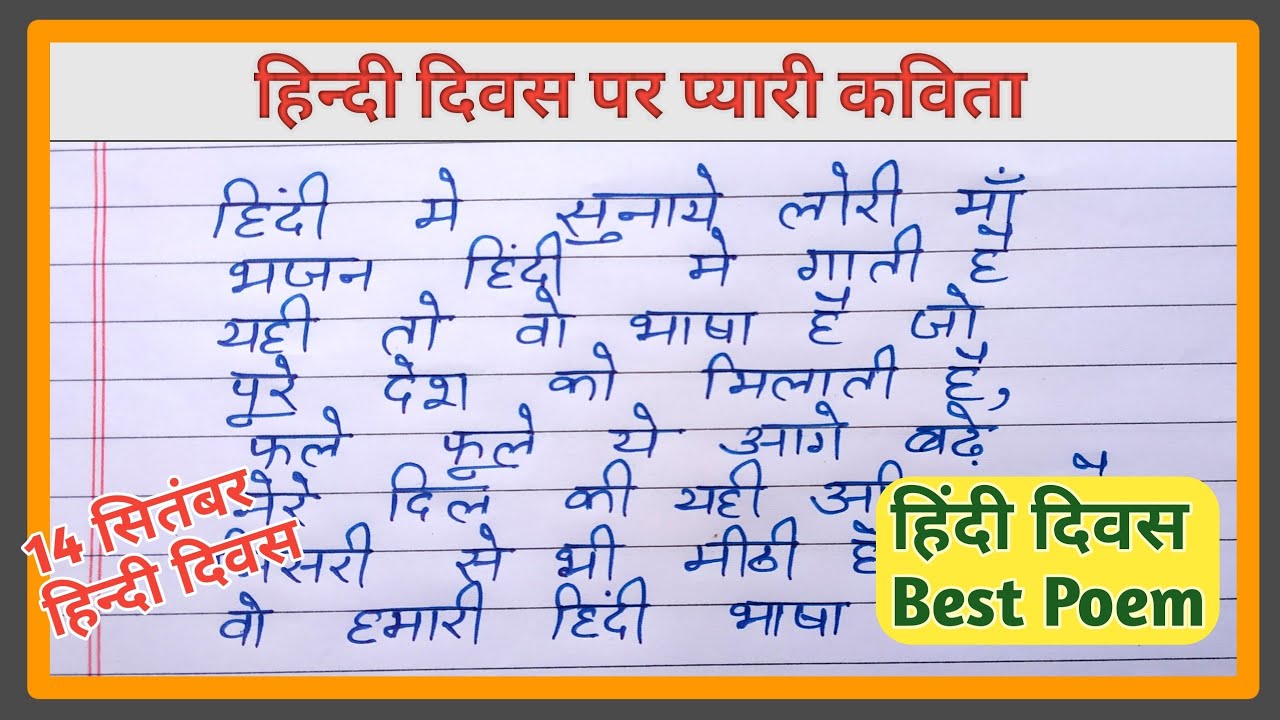 हिन्दी दिवस पर प्यारी कविता
हिंदी मे सुनाये लोरी माँ
भजन हिंदी मे गाती है
यही तो वो भाषा है जो
पूरे देश को मिलाती है,
फले फूले ये आगे बढ़े
मेरे दिल की यही
से भी मीठी
वो हमारी हिंदी भाषा
14 सितंबर
हिन्दी दिवस
हिंदी दिवस
Best Poem